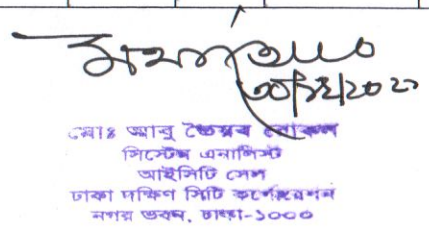 মোঃ আবু তৈয়ব রোকন
সিস্টেম এনালিস্ট
আইসিটি সেল
ঢাকা দক্ষিণ সিটি কর্পোরেশন
নগর ভবন, ঢাকা-১০০০